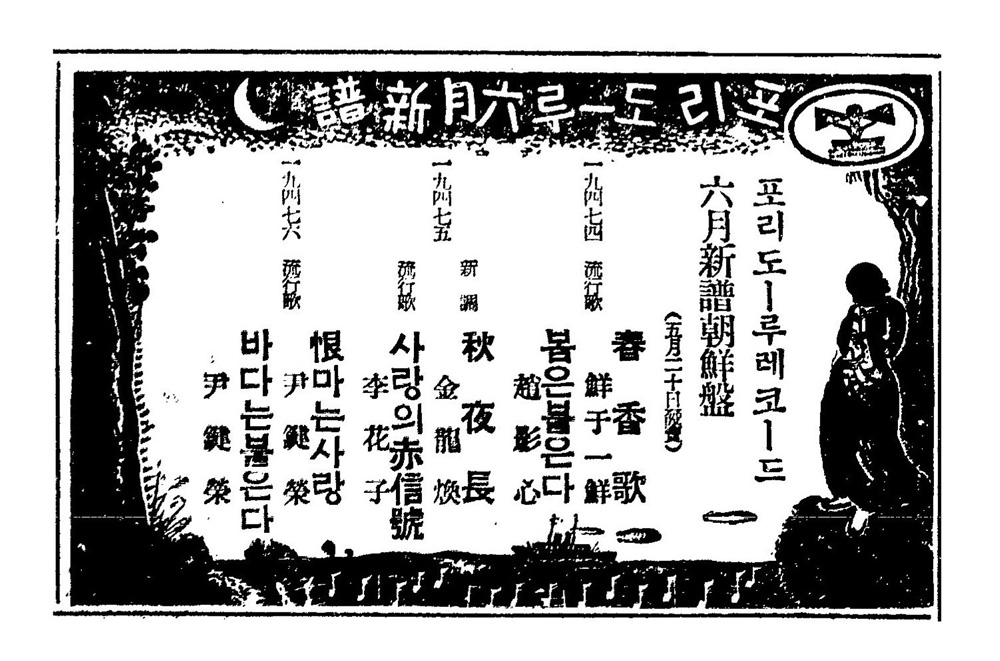 포리도ー루六月新譜
포리도ー루레코ー드
六月新譜朝鮮盤
(五月二十日發賣)
一九四七四 流行歌 春香歌
鮮于一鮮
봄은불은다
趙影心
一九四七五 新調 秋夜長
金龍煥
流行歌 사랑의赤信號
李花子
一九四七六 流行歌 恨마는사랑
尹鍵榮
바다는불은다
尹鍵榮